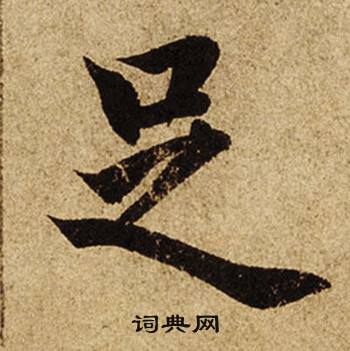 足
词典网